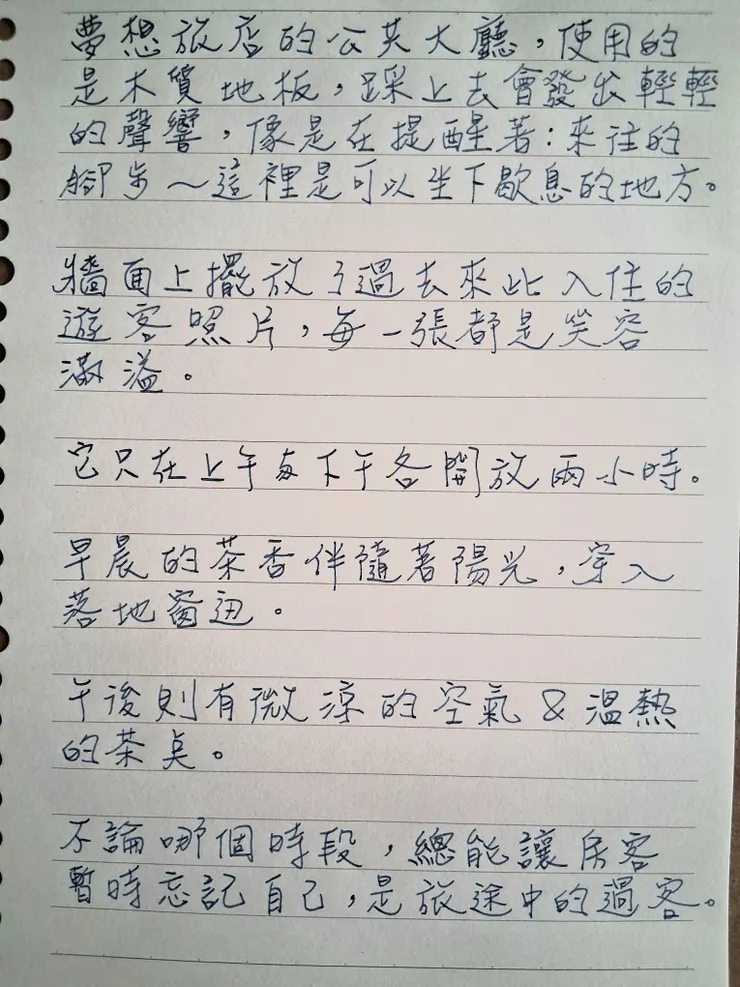 夢想旅店的公共大廳，使用的
是木質地板，踩上去會發出輕輕
的聲響，像是在提醒著：來往的
腳步～這裡是可以坐下歇息的地方。
牆面上擺放了過去來此入住的
遊客照片，每一張都是笑容
滿溢。
它只在上午與下午各開放兩小時。
早晨的茶香伴隨著陽光，穿入
落地窗迅。
午後則有微涼的空氣&溫熱
的茶桌。
不論哪個時段，總能讓房客
暫時忘記自己，是旅途中的過客。